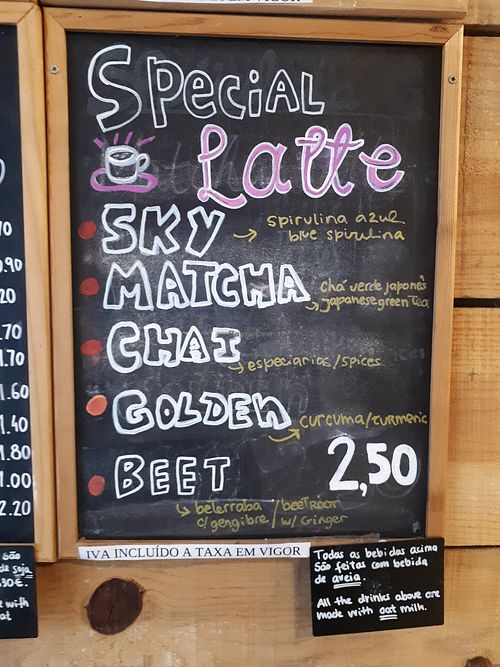 IVA INCLUÍDO A TAXA EM VIGOR
Special
Latte
SKY
spirulina azul
blue spirulina
MATCHA
chá verde japonês
japanese green tea
CHAI
especiarias/spices
GOLDEN
curcuma/turmeric
BEET
beterraba / beetroot
c/ gengibre / w/ Ginger
2,50
IVA INCLUÍDO A TAXA EM VIGOR
Todas as bebidas acima
São feitas com bebida
de aveia.
All the drinks above are
made with oat milk.
0.90
.20
.70
1.70
1.60
1.40
1.80
1.00
2.20
São
de soja
30€.
e with